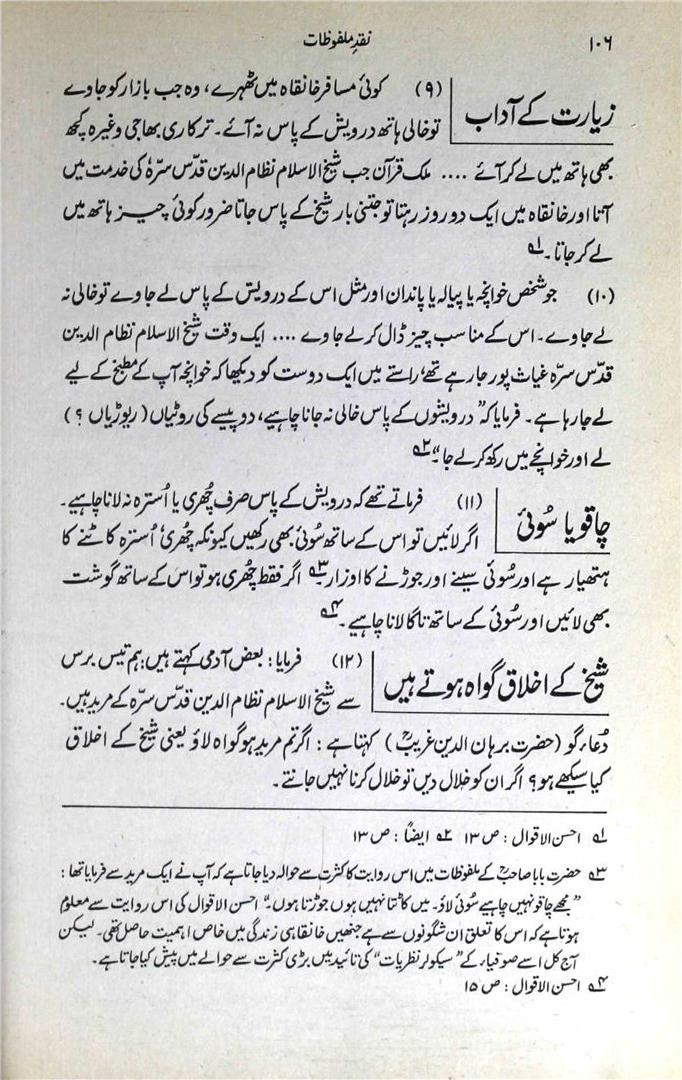 ۱۰۶
نقدِ ملفوظات
زیارت کے آداب
(۹) کوئی مسافر خانقاہ میں ٹھہرے، وہ جب بازار کو جاوے
تو خالی ہاتھ درویش کے پاس نہ آئے۔ ترکاری بھاجی وغیرہ کچھ
بھی ہاتھ میں لے کر آئے .... ملک قرآن جب شیخ الاسلام نظام الدین قدّس سرہٗ کی خدمت میں
آتا اور خانقاہ میں ایک دو روز رہتا تو جتنی بار شیخ کے پاس جاتا ضرور کوئی چیز ہاتھ میں
لے کر جاتا۔ ۱؎
(۱۰) جو شخص خوانچہ یا پیالہ یا پاندان اور مثل اس کے درویش کے پاس لے جاوے تو خالی نہ
لے جاوے۔ اس کے مناسب چیز ڈال کر لے جاوے .... ایک وقت شیخ الاسلام نظام الدین
قدّس سرہٗ غیاث پور جا رہے تھے، راستے میں ایک دوست کو دیکھا کہ خوانچہ آپ کے مطبخ کے لیے
لے جا رہا ہے۔ فرمایا کہ ”درویشوں کے پاس خالی نہ جانا چاہیے، دو پیسے کی روٹیاں (ریوڑیاں ؟)
لے اور خوانچے میں رکھ کر لے جا“۔ ۲؎
چاقو یا سُوئی
(۱۱) فرماتے تھے کہ درویش کے پاس صرف چُھری یا اُسترہ نہ لانا چاہیے۔
اگر لائیں تو اس کے ساتھ سُوئی بھی رکھیں کیونکہ چُھری، اُسترہ کاٹنے کا
ہتھیار ہے اور سُوئی سینے اور جوڑنے کا اوزار۔ ۳؎ اگر فقط چُھری ہو تو اس کے ساتھ گوشت
بھی لائیں اور سُوئی کے ساتھ تاگا لانا چاہیے۔ ۴؎
شیخ کے اخلاق گواہ ہوتے ہیں
(۱۲) فرمایا: بعض آدمی کہتے ہیں: ہم تیس برس
سے شیخ الاسلام نظام الدین قدّس سرہٗ کے مرید ہیں۔
دُعاء گو (حضرت برہان الدین غریبؒ) کہتا ہے: اگر تم مرید ہو گواہ لاؤ یعنی شیخ کے اخلاق
کیا سیکھے ہو؟ اگر ان کو خلال دیں تو خلال کرنا نہیں جانتے۔
۱؎ احسن الاقوال: ص ۱۳ ۲؎ ایضاً: ص ۱۳
۳؎ حضرت بابا صاحبؒ کے ملفوظات میں اس روایت کا کثرت سے حوالہ دیا جاتا ہے کہ آپ نے ایک مرید سے فرمایا تھا:
”مجھے چاقو نہیں چاہیے سُوئی لاؤ۔ میں کاٹتا نہیں ہوں جوڑتا ہوں۔“ احسن الاقوال کی اس روایت سے معلوم
ہوتا ہے کہ اس کا تعلق ان شگونوں سے ہے جنھیں خانقاہی زندگی میں خاص اہمیت حاصل تھی۔ لیکن
آج کل اسے صوفیاء کے ”سیکولر نظریات“ کی تائید میں بڑی کثرت سے حوالے میں پیش کیا جاتا ہے۔
۴؎ احسن الاقوال: ص ۱۵